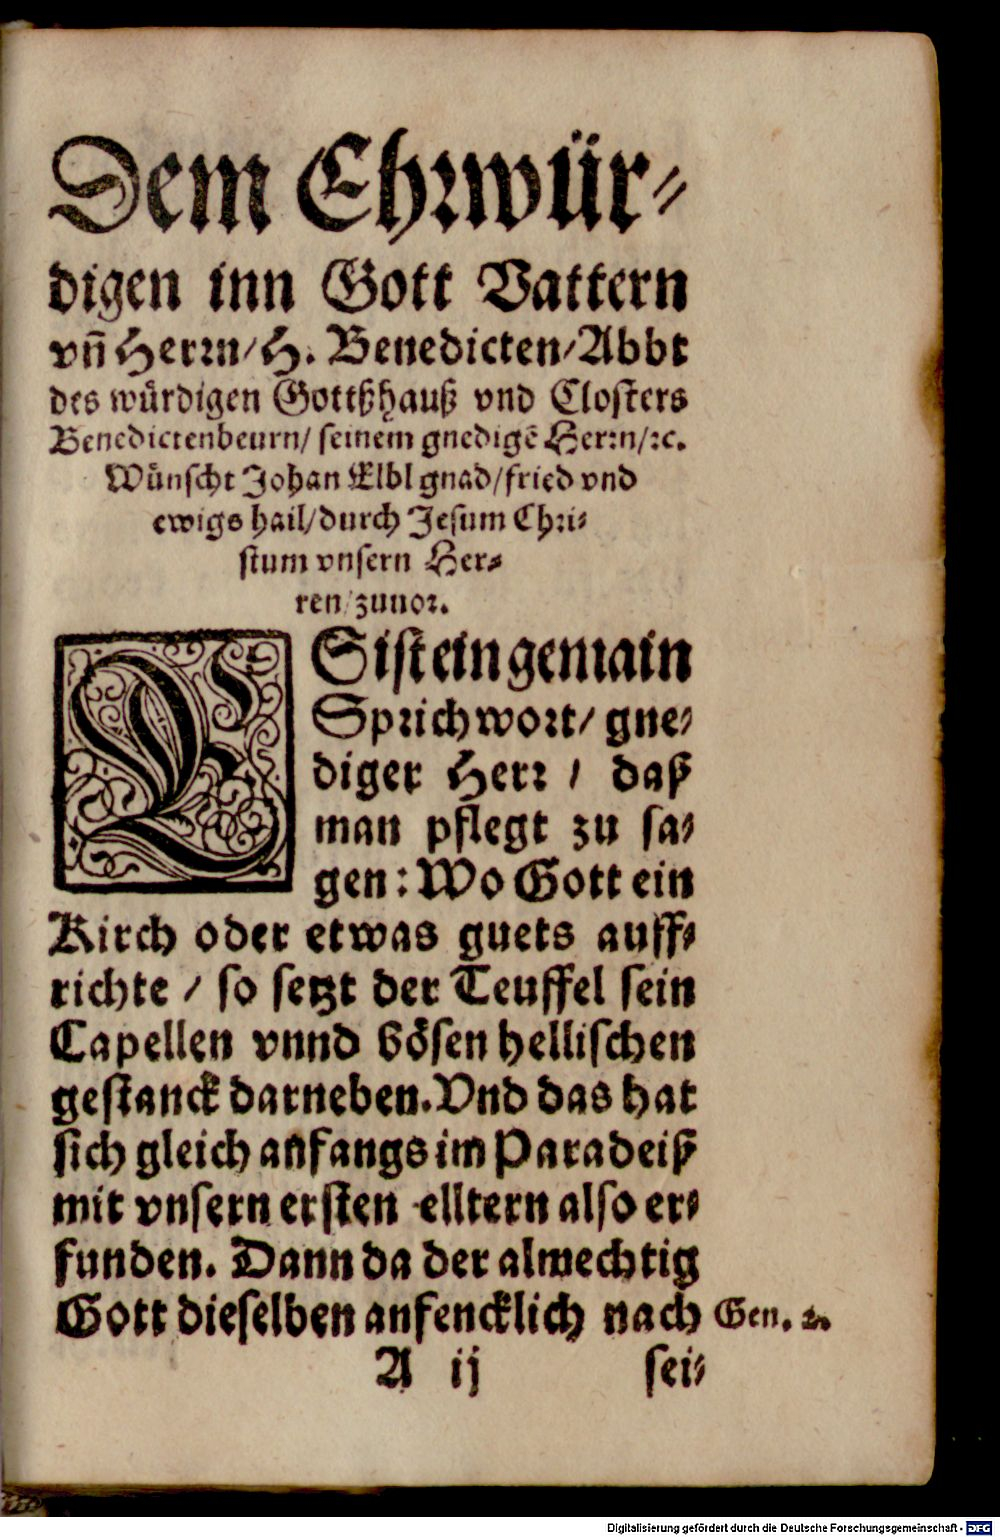 Dem Ehrwür⸗
digen inn Gott Vattern
vn̄ Herrn/ H. Benedicten/ Abbt
des wuͤrdigen Gottßhauß vnd Closters
Benedictenbeurn/ seinem gnedigē Herrn/ ꝛc.
Wuͤnscht Johan Elbl gnad/ fried vnd
ewigs hail/ durch Jesum Chri⸗
stum vnsern Her⸗
ren/ zuuor.
ES ist ein gemain
Sprichwort/ gne⸗
diger Herr / daß
man pflegt zu sa⸗
gen: Wo Gott ein
Kirch oder etwas guets auff⸗
richte / so setzt der Teuffel sein
Capellen vnnd boͤsen hellischen
gestanck darneben. Vnd das hat
sich gleich anfangs im Paradeiß
mit vnsern ersten elltern also er⸗
funden. Dann da der almechtig
Gott dieselben anfencklich nach Gen. 2.
A ij sei⸗
Digitalisierung gefördert durch die Deutsche Forschungsgemeinschaft - DFG